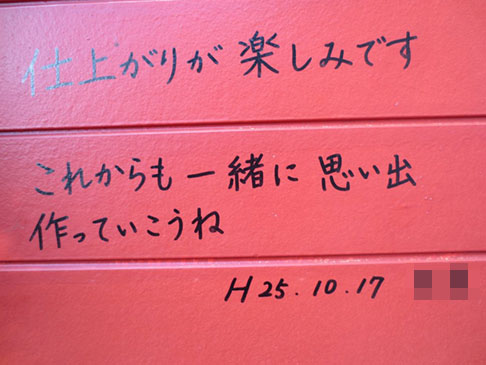 仕上がりが楽しみです
これからも一緒に思い出
作っていこうね
H25.10.17